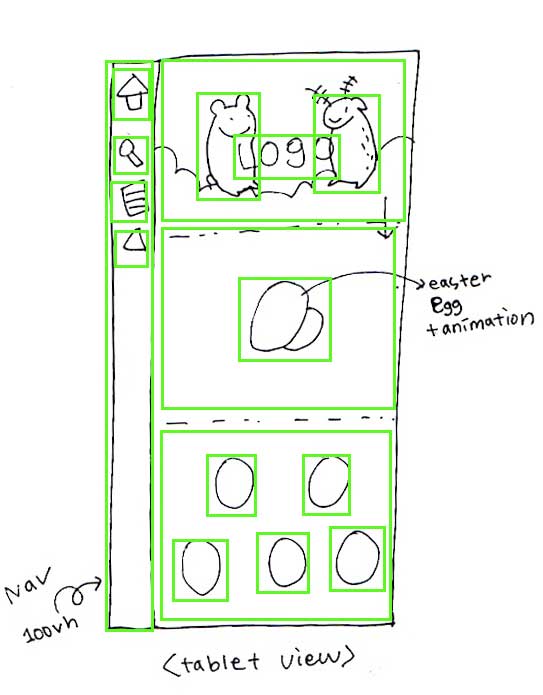 Logo
easter
Egg
+animation
Nav
100vh
<tablet view>